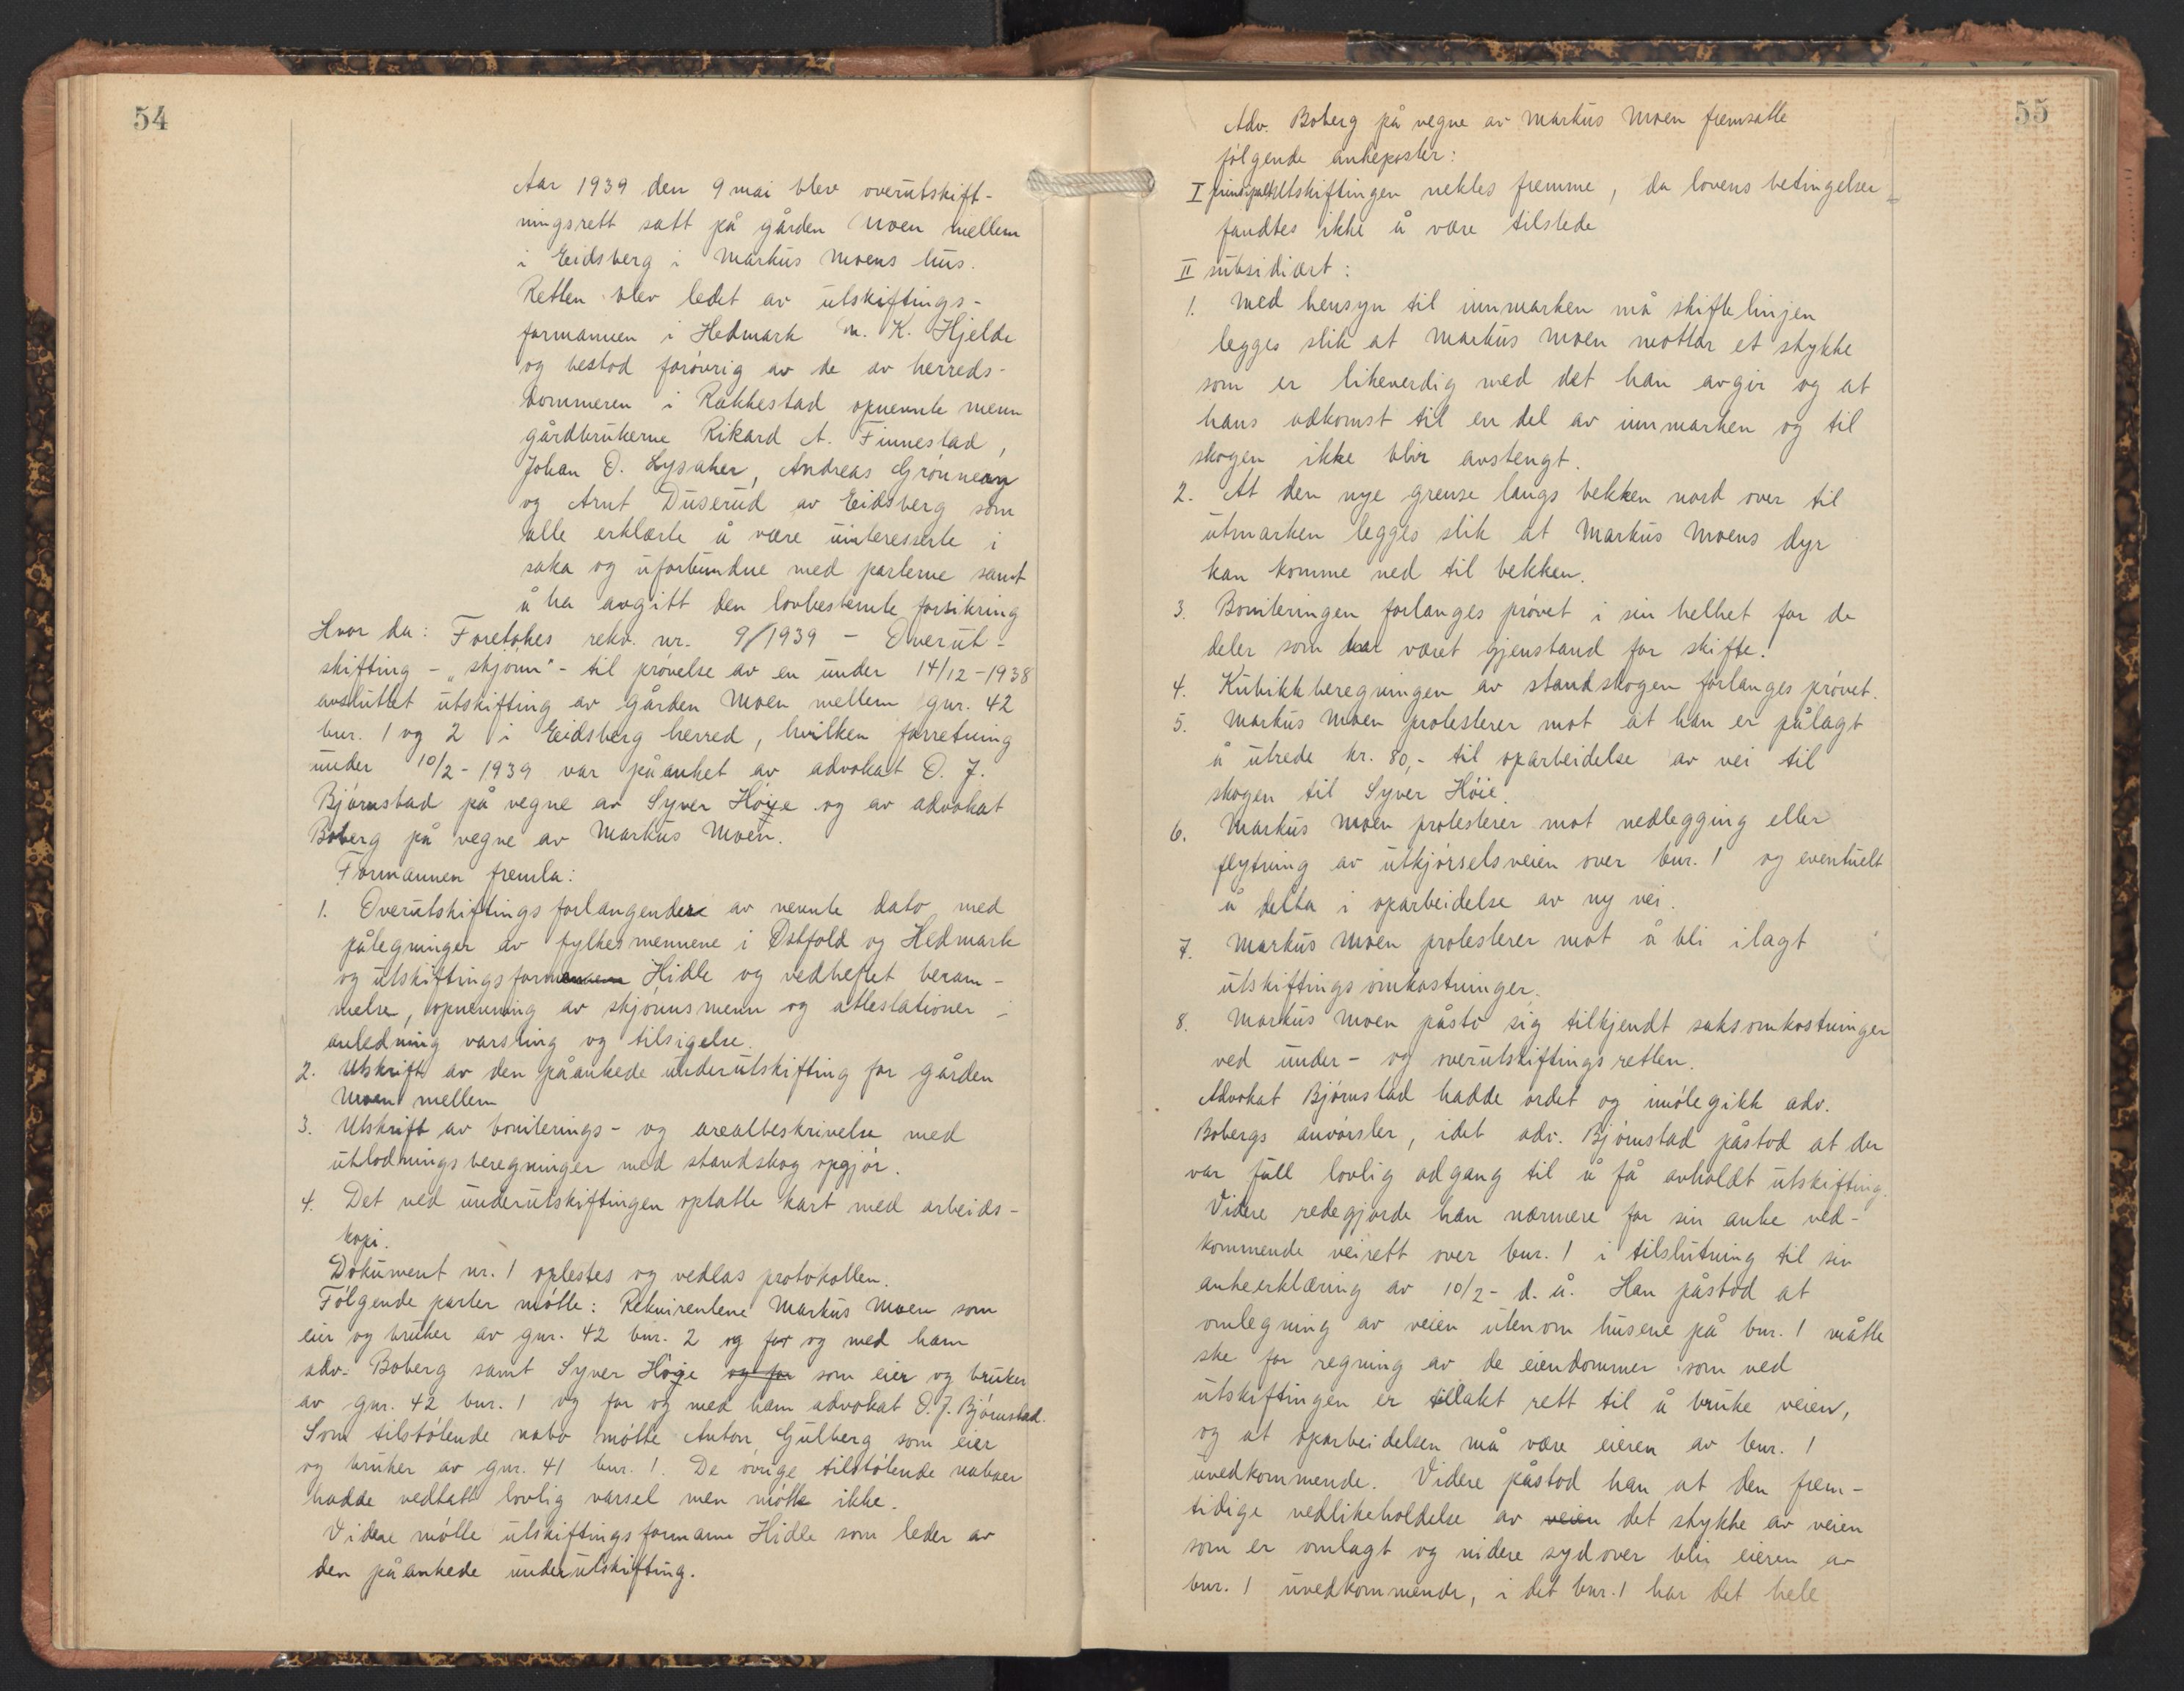 54
Aar 1939 den 9 mai blev overutskift-
ningsrett satt på gården Moen mellem
i Eidsberg i Markus Moens hus.
Retten blev ledet av utskiftings-
formannen i Hedmark M. K. Hjelde
og bestod forøvrig av de av herreds-
dommeren i Rakkestad opnevnte menn
gårdbrukerne Rikard A. Finnestad,
Johan O. Lysaker, Andreas Grønneng
og Arnt Duserud av Eidsberg som
alle erklærte å være uinteresserte i
saka og uforbundne med parterne samt
å ha avgitt den lovbestemte forsikring
Hvor da: Foretokes rekv. nr. 9/1939 - Overut-
skifting - „skjønn" - til prøvelse av en under 14/12-1938
avsluttet utskifting av gården Moen mellem gnr. 42
bnr. 1 og 2 i Eidsberg herred, hvilken forretning
under 10/2-1939 var påanket av advokat O. J.
Bjørnstad på vegne av Syver Høie og av advokat
Boberg på vegne av Markus Moen.
Formannen fremla:
1. Overutskiftingsforlangendere av nevnte dato med
pålegninger av fylkesmennene i Østfold og Hedmark
og utskiftingsformannen Hidle og vedheftet beram-
melse, opnevning av skjønnsmenn og attestationer i
anledning varsling og tilsigelse.
2. Utskrift av den påankede underutskifting for gården
Moen mellem
3. Utskrift av boniterings- og arealbeskrivelse med
utlodningsberegninger med standskog opgjør.
4. Det ved underutskiftingen optatte kart med arbeids-
kopi.
Dokument nr. 1 oplestes og vedlas protokollen.
Følgende parter møtte: Rekvirentene Markus Moen som
eier og bruker av gnr. 42 bnr. 2 og for og med ham
adv. Boberg samt Syver Høie og for som eier og bruker
av gnr. 42 bnr. 1 og for og med ham advokat O. J. Bjørnstad.
Som tilstøtende nabo møtte Anton Gulberg som eier
og bruker av gnr. 41 bnr. 1. De øvrige tilstøtende naboer
hadde vedtatt lovlig varsel men møtte ikke.
Videre møtte utskiftingsformann Hidle som leder av
den påankede underutskifting.
55
Adv. Boberg på vegne av Markus Moen fremsatte
følgende ankeposter:
I prinsipalt Utskiftingen nektes fremme, da lovens betingelser
fandtes ikke å være tilstede
II subsidiært:
1. Med hensyn til innmarken må skiftelinjen
legges slik at Markus Moen mottar et stykke
som er likeverdig med det han avgir og at
hans adkomst til en del av innmarken og til
skogen ikke blir avstengt.
2. At den nye grense langs bekken nord over til
utmarken legges slik at Markus Moens dyr
kan komme ned til bekken.
3. Boniteringen forlanges prøvet i sin helhet for de
deler som har været gjenstand for skifte.
4. Kubikkberegningen av standskogen forlanges prøvet.
5. Markus Moen protesterer mot at han er pålagt
å utrede kr. 80,- til oparbeidelse av vei til
skogen til Syver Høie.
6. Markus Moen protesterer mot nedlegging eller
flytning av utkjørselsveien over bnr. 1 og eventuelt
å delta i oparbeidelse av ny vei.
7. Markus Moen protesterer mot å bli ilagt
utskiftingsomkostninger.
8. Markus Moen påsto sig tilkjendt saksomkostninger
ved under- og overutskiftingsretten.
Advokat Bjørnstad hadde ordet og imøtegikk adv.
Bobergs anførsler, idet adv. Bjørnstad påstod at der
var full lovlig adgang til å få avholdt utskifting.
Videre redegjorde han nærmere for sin anke ved-
kommende veirett over bnr. 1 i tilslutning til sin
ankeerklæring av 10/2- d. å. Han påstod at
omlegning av veien utenom husene på bnr. 1 måtte
ske for regning av de eiendommer som ved
utskiftingen er tillakt rett til å bruke veien,
og at oparbeidelsen må være eieren av bnr. 1
uvedkommende. Videre påstod han at den frem-
tidige vedlikeholdelse av veien det stykke av veien
som er omlagt og videre sydover blir eieren av
bnr. 1 uvedkommende, i det bnr. 1 har det hele